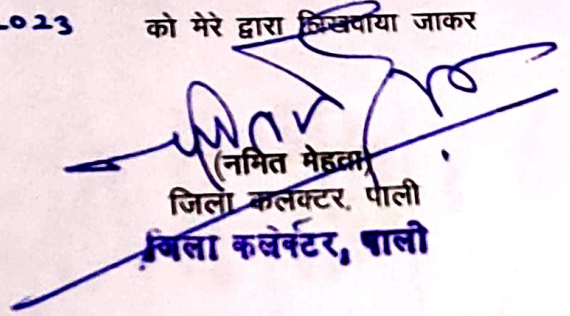 2023 को मेरे द्वारा लिखवाया जाकर
(नमित मेहता)
जिला कलक्टर, पाली
जिला कलक्टर, पाली